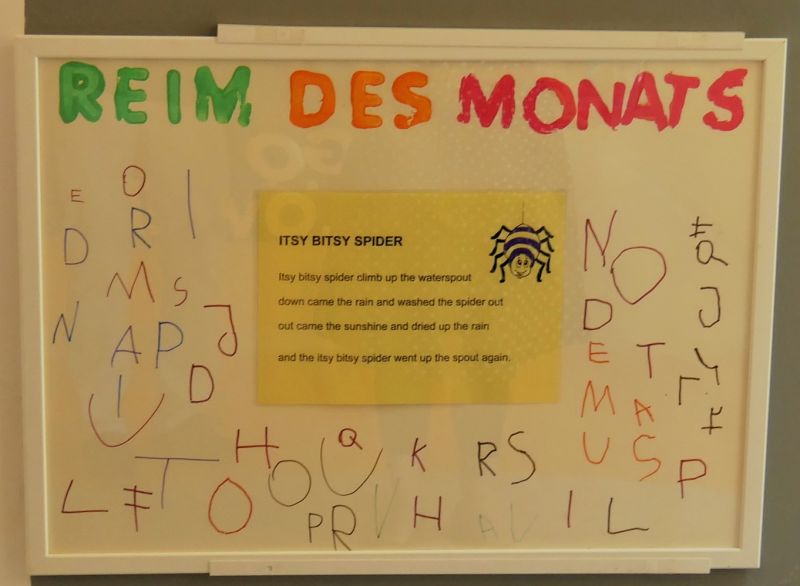 REIM DES MONATS
ITSY BITSY SPIDER
Itsy bitsy spider climb up the waterspout
down came the rain and washed the spider out
out came the sunshine and dried up the rain
and the itsy bitsy spider went up the spout again.
E O I
D R
M S
N A P J
I D
U
N O
D
E T
M A
U S
Q
J
P
H Q K R S
T O U
L O
P R V H A V I L